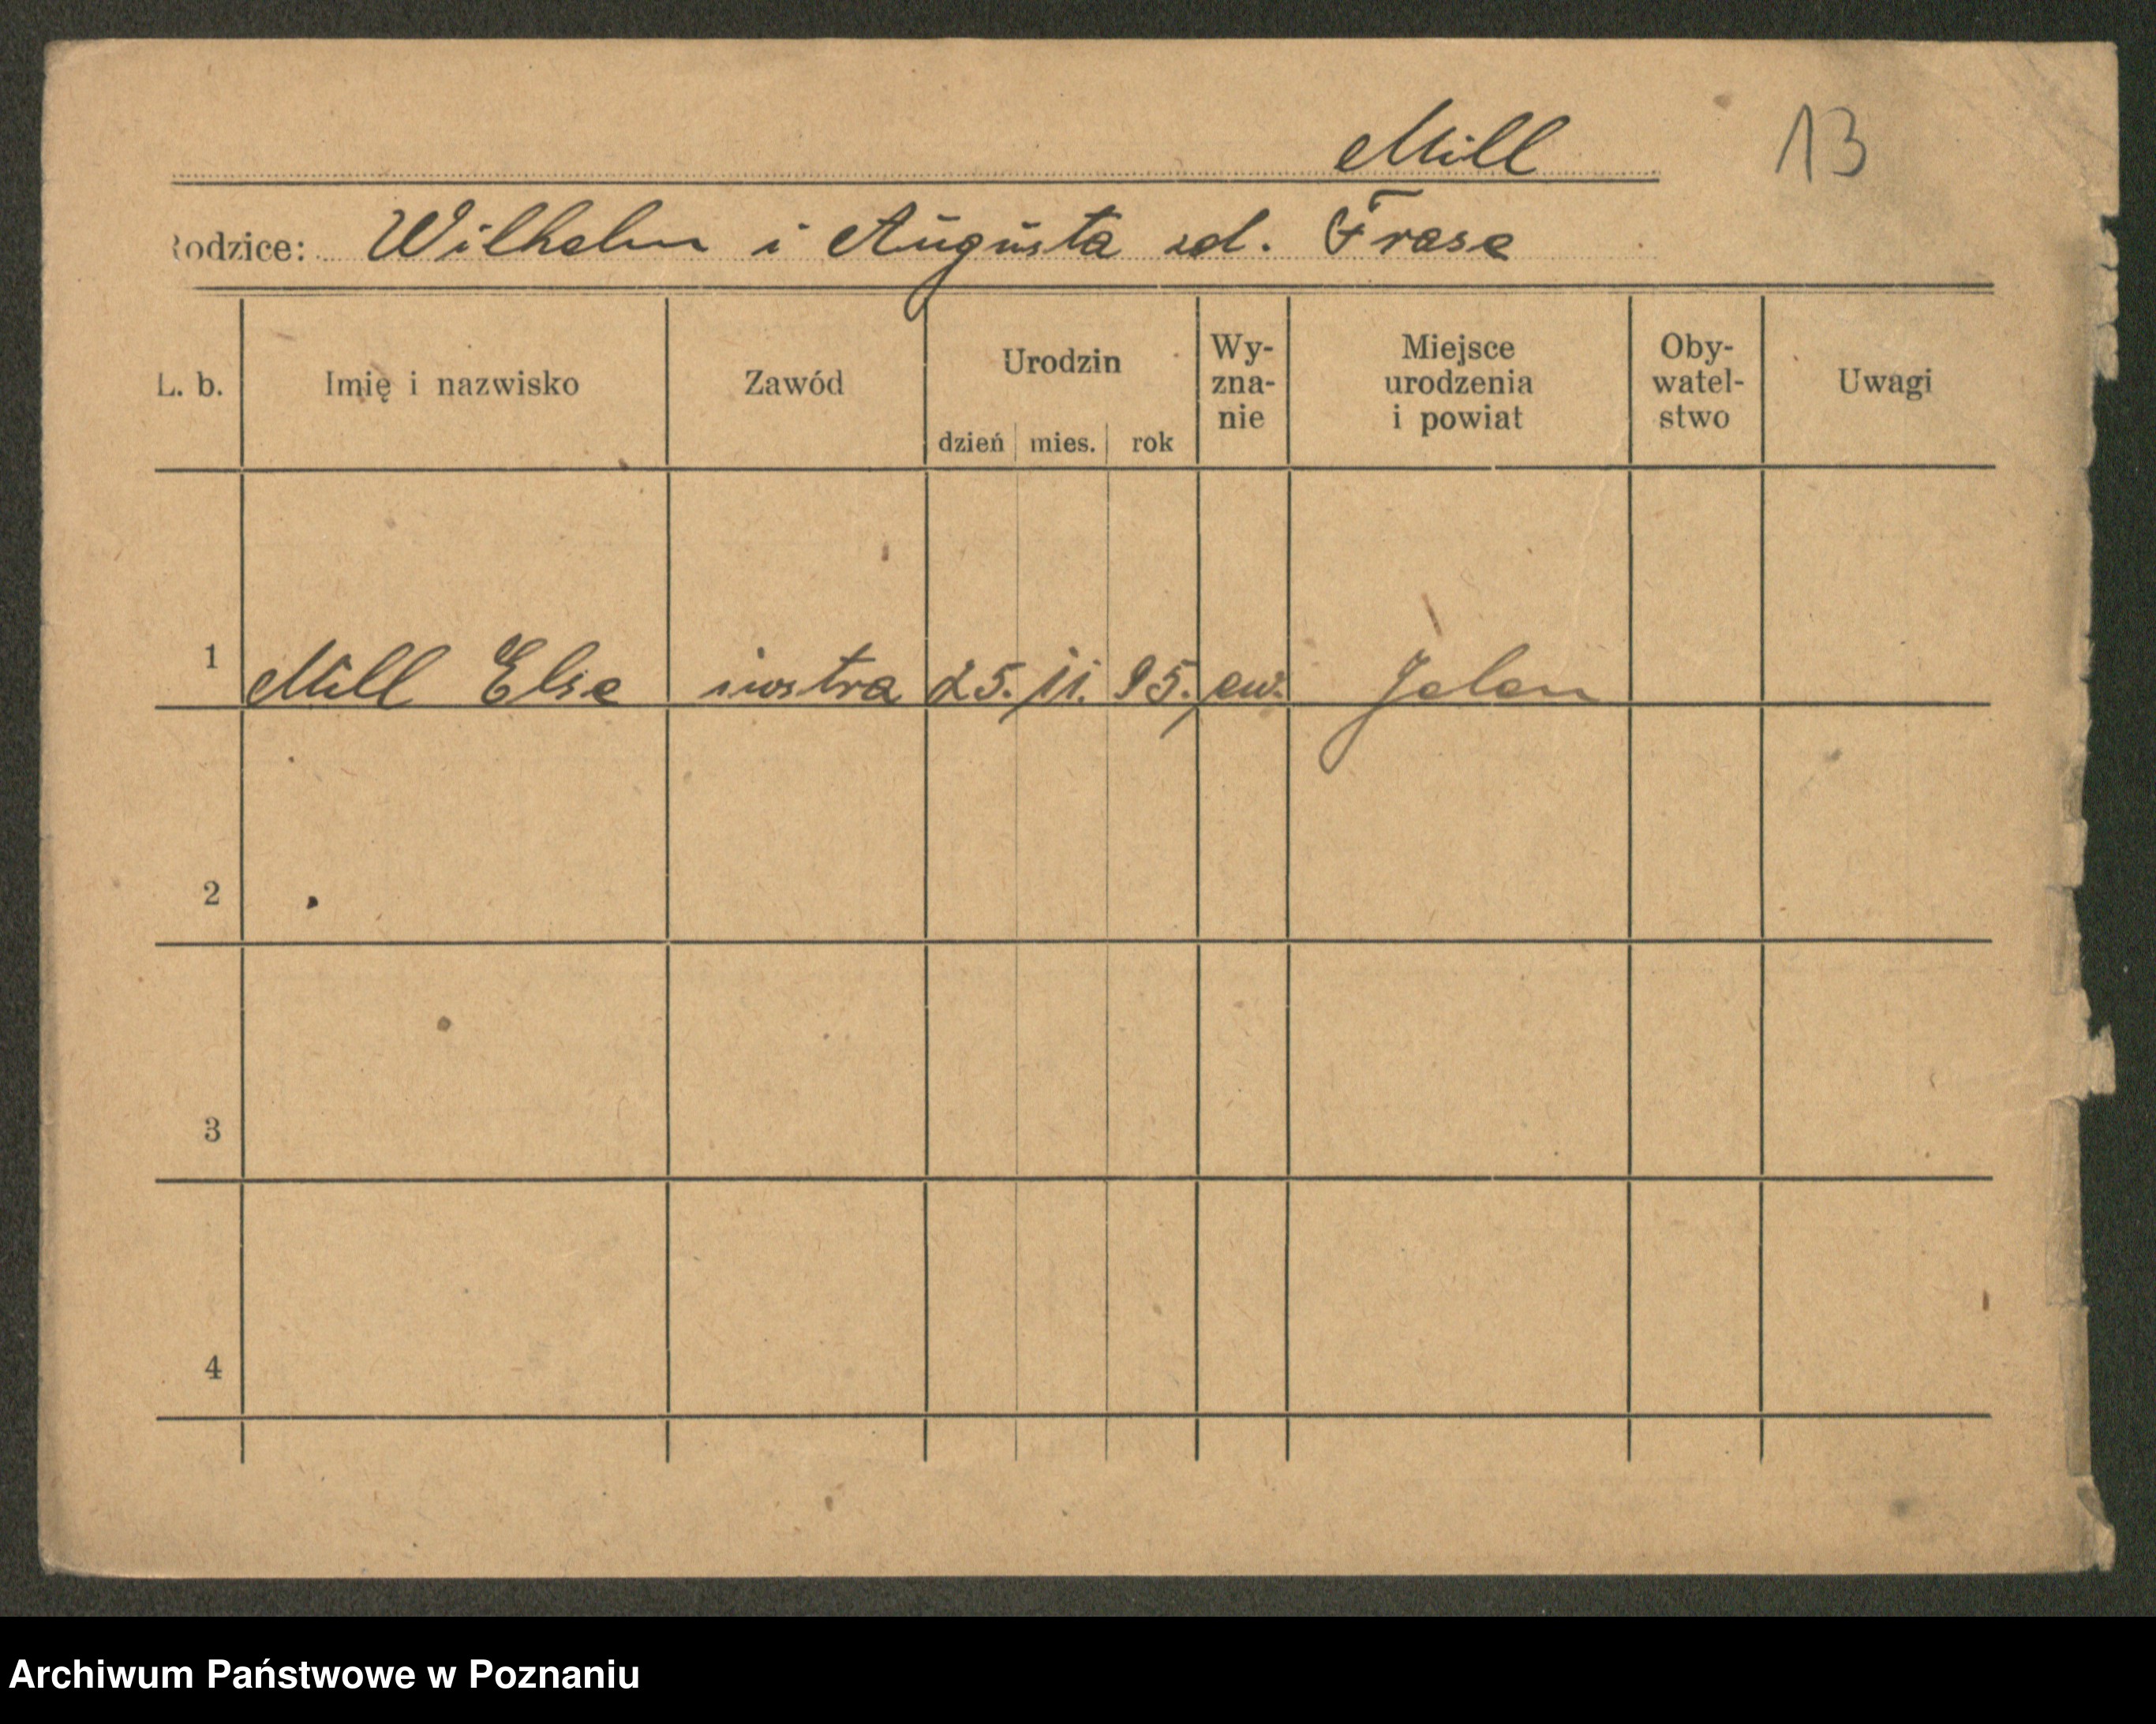 Mill
13
Rodzice: Wilhelm i Augusta zd. Frase
L. b. Imię i nazwisko Zawód Urodzin dzień mies. rok Wy-zna-nie Miejsce urodzenia i powiat Oby-watel-stwo Uwagi
1 Mill Else siostra 25. 11. 95. ew. Jelen
2
3
4
Archiwum Państwowe w Poznaniu